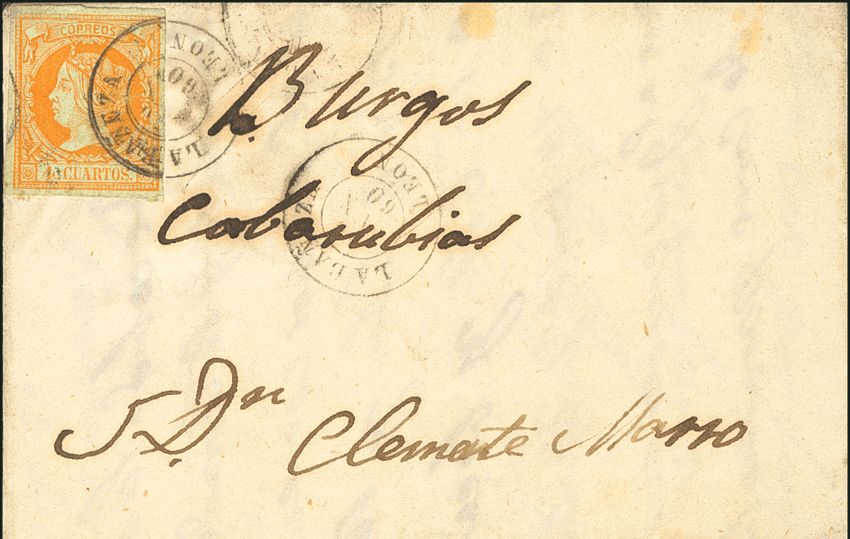 CORREOS
4 CUARTOS.
LA BAÑEZA LEON 60
Burgos
LA BAÑEZA LEON 60
Cobarubias
S. Dn Clemente Marro